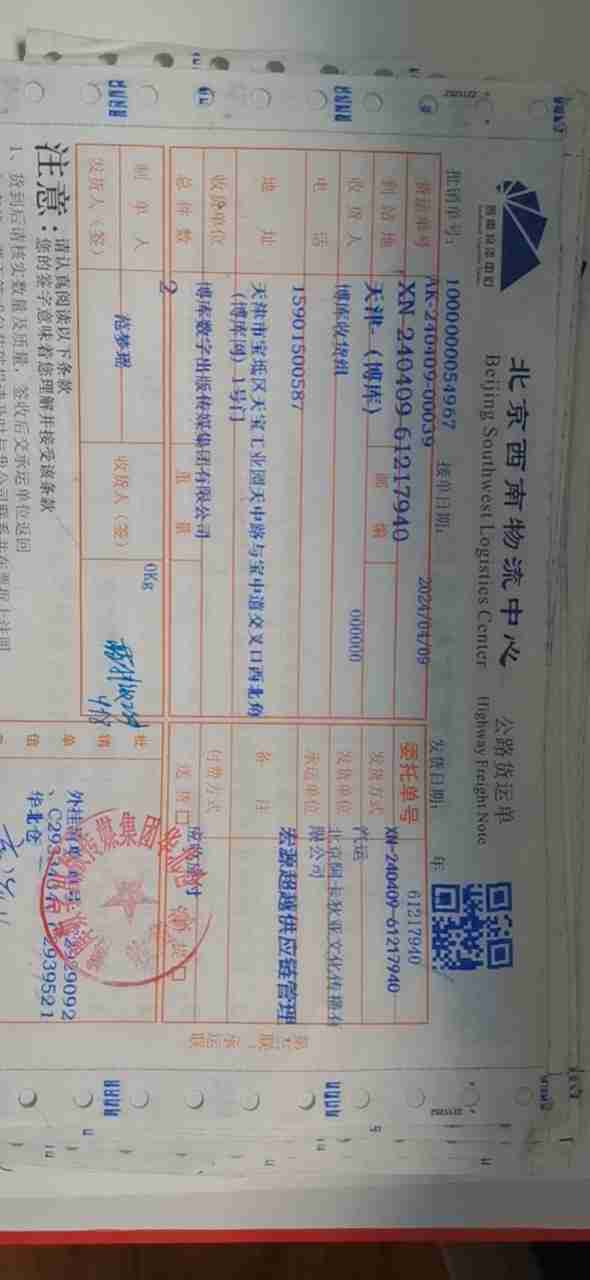 北京西南物流中心
公路货运单
Beijing Southwest Logistics Center
Highway Freight Note
西南物流中心
批销单号: 1000000054967
接单日期: 2024/04/09
发货日期: 年
AK-240409-00039
货运单号 XN-240409-61217940
委托单号 61217940
XN-240409-61217940
到站地 天津（博库）
邮编 000000
发货方式 汽运
收货人 博库收货组
发货单位 北京阿卡狄亚文化传播有
限公司
电话 15901500587
承运单位 宏源超越供应链管理
地址 天津市宝坻区天宝工业园天中路与宝中道交叉口西北角
(博库网) 1号门
备注
收货单位 博库数字出版传媒集团有限公司
付费方式 应收逐付
总件数 2
重量 0Kg
送货
制单人 范梦瑶
收货人(签)
发货人(签)
4/8
批销单信
外挂清单
华北仓
第五联：承运联
注意:
请认真阅读以下条款
您的签字意味着您理解并接受该条款
1、货到后请核实数量及质量，签收后交承运单位返回